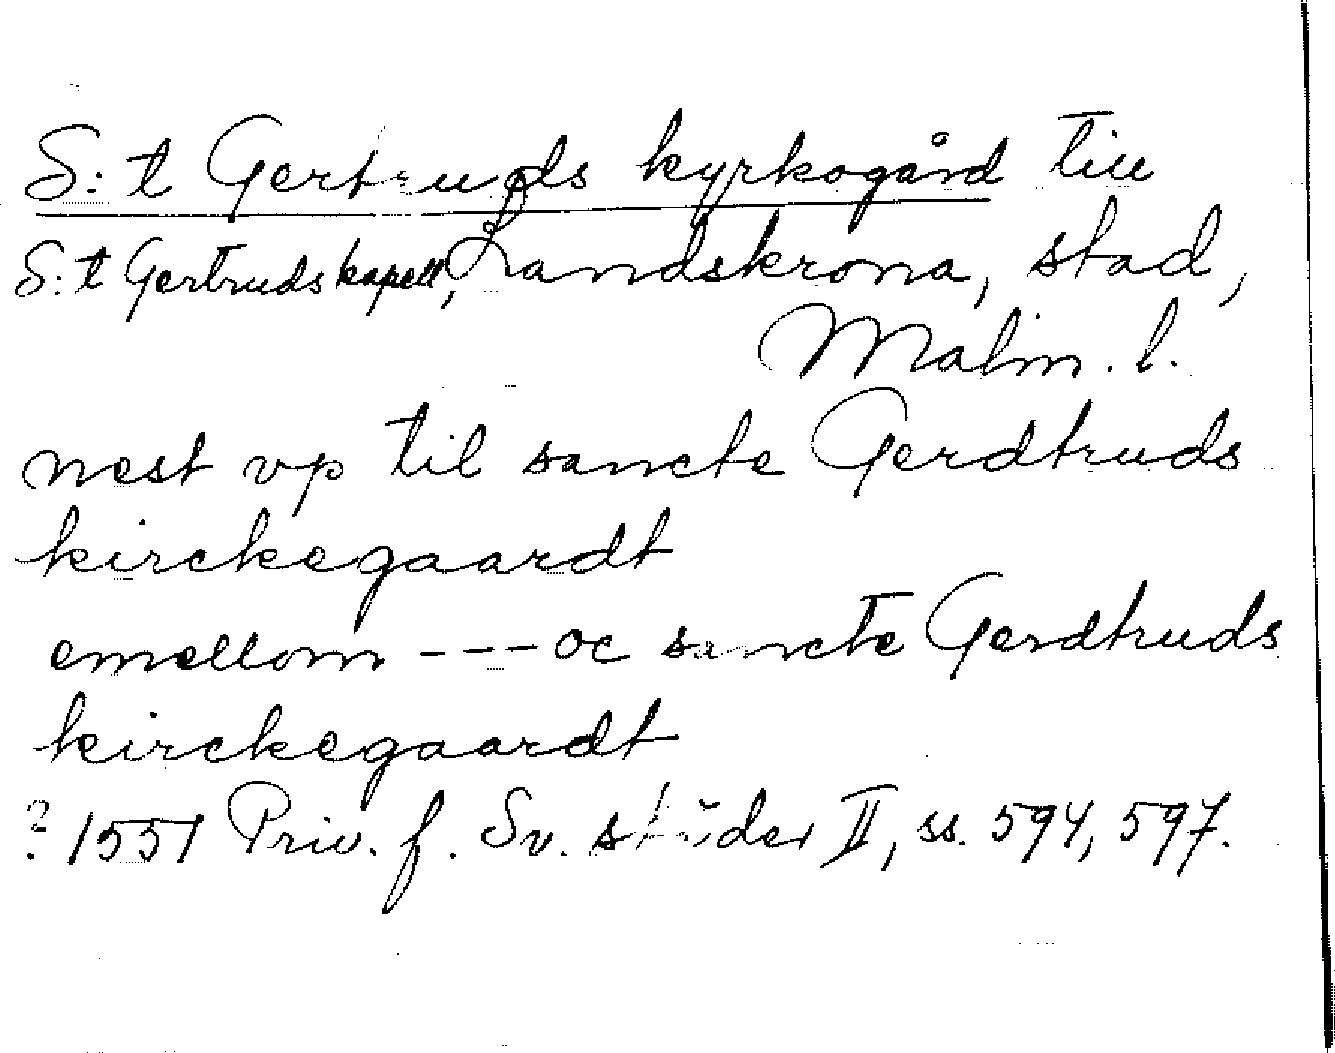 S:t Gertruds kyrkogård till
S:t Gertruds kapell, Landskrona, stad,
Malm. l.
nest vp til sancte Gerdtruds
kirckegaardt
emellom --- oc sancte Gerdtruds
kirckegaardt
? 1551 Priv. f. Sv. städer II, ss. 594, 597.